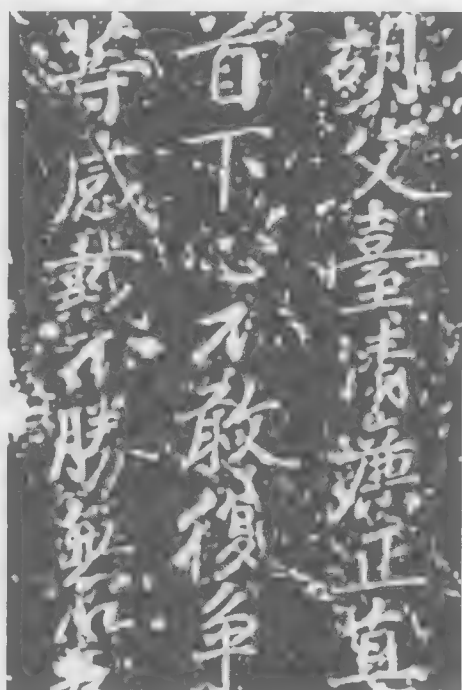 胡文臺清廉正直
首下心不敢復争
等感戴不勝無